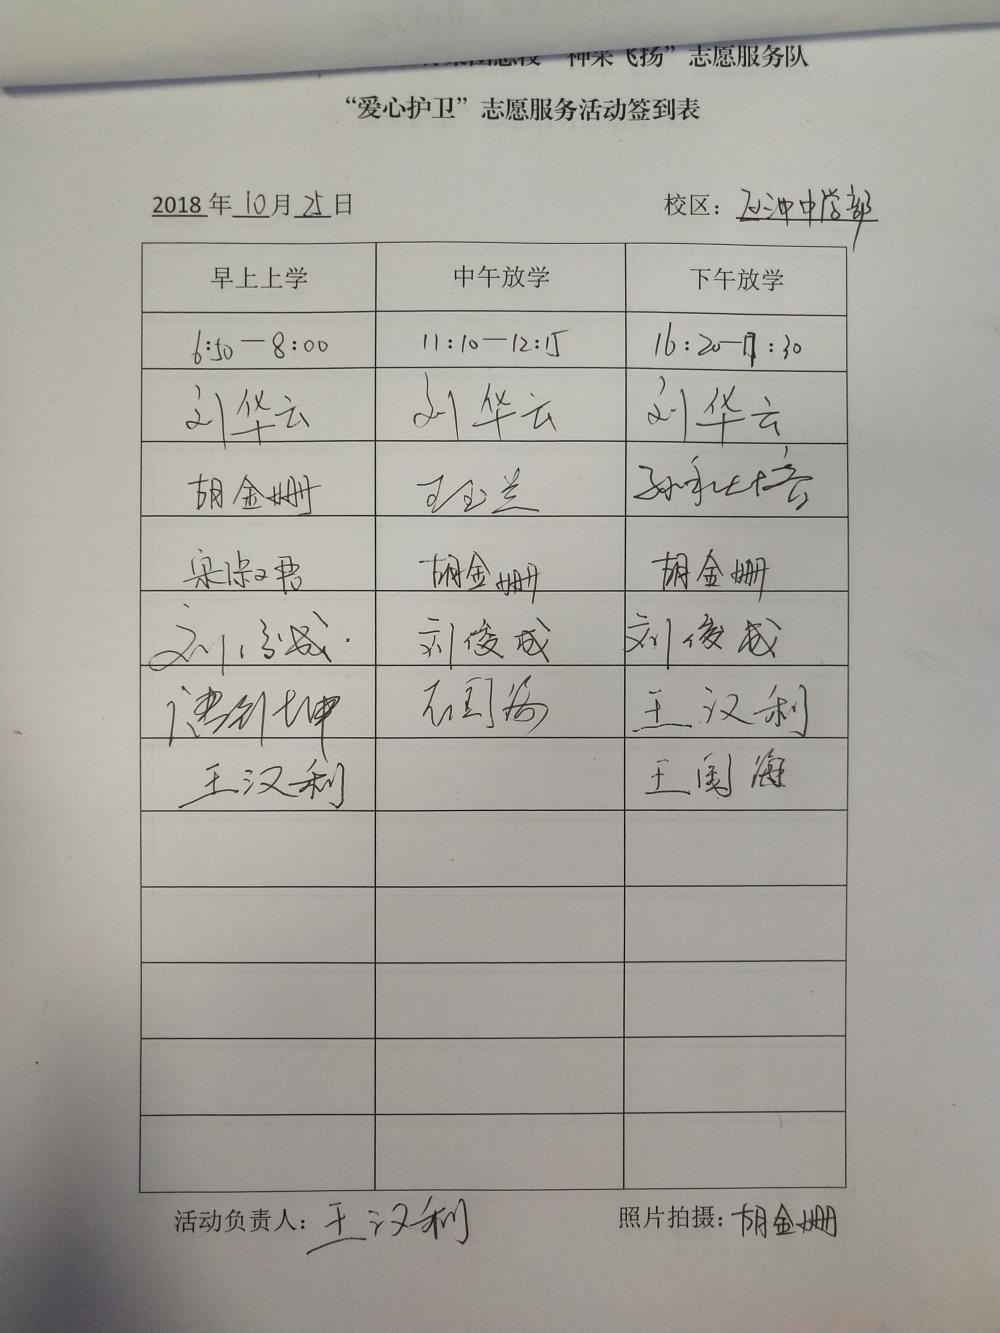 神采飞扬”志愿服务队
“爱心护卫”志愿服务活动签到表
2018年10月25日 校区：石冲中学部
早上上学 中午放学 下午放学
6:50—8:00 11:10—12:15 16:20—17:30
刘华云 刘华云 刘华云
胡金姗 王玉兰
宋淑君 胡金姗 胡金姗
刘俊成 刘俊成 刘俊成
王汉利
王汉利 王国海
活动负责人：王汉利 照片拍摄：胡金姗